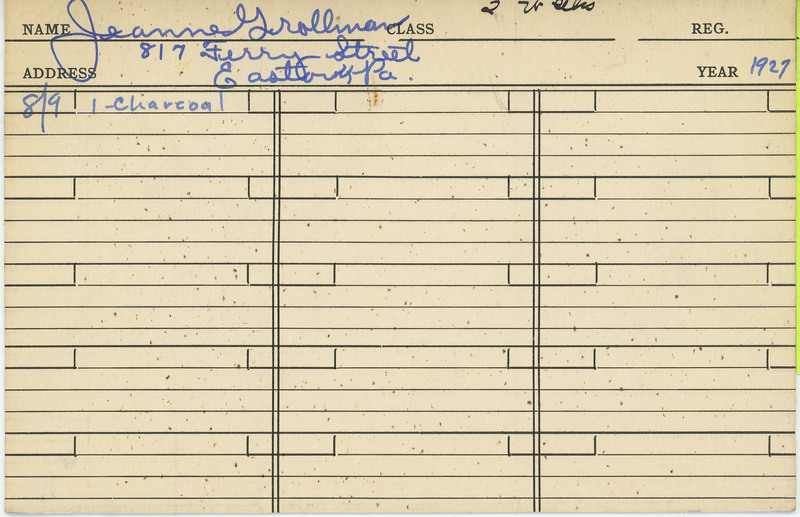 2 Weeks
NAME Jeanne Grollman CLASS REG.
817 Ferry Street
ADDRESS Easton, Pa. YEAR 1927
8/9 1-Charcoal